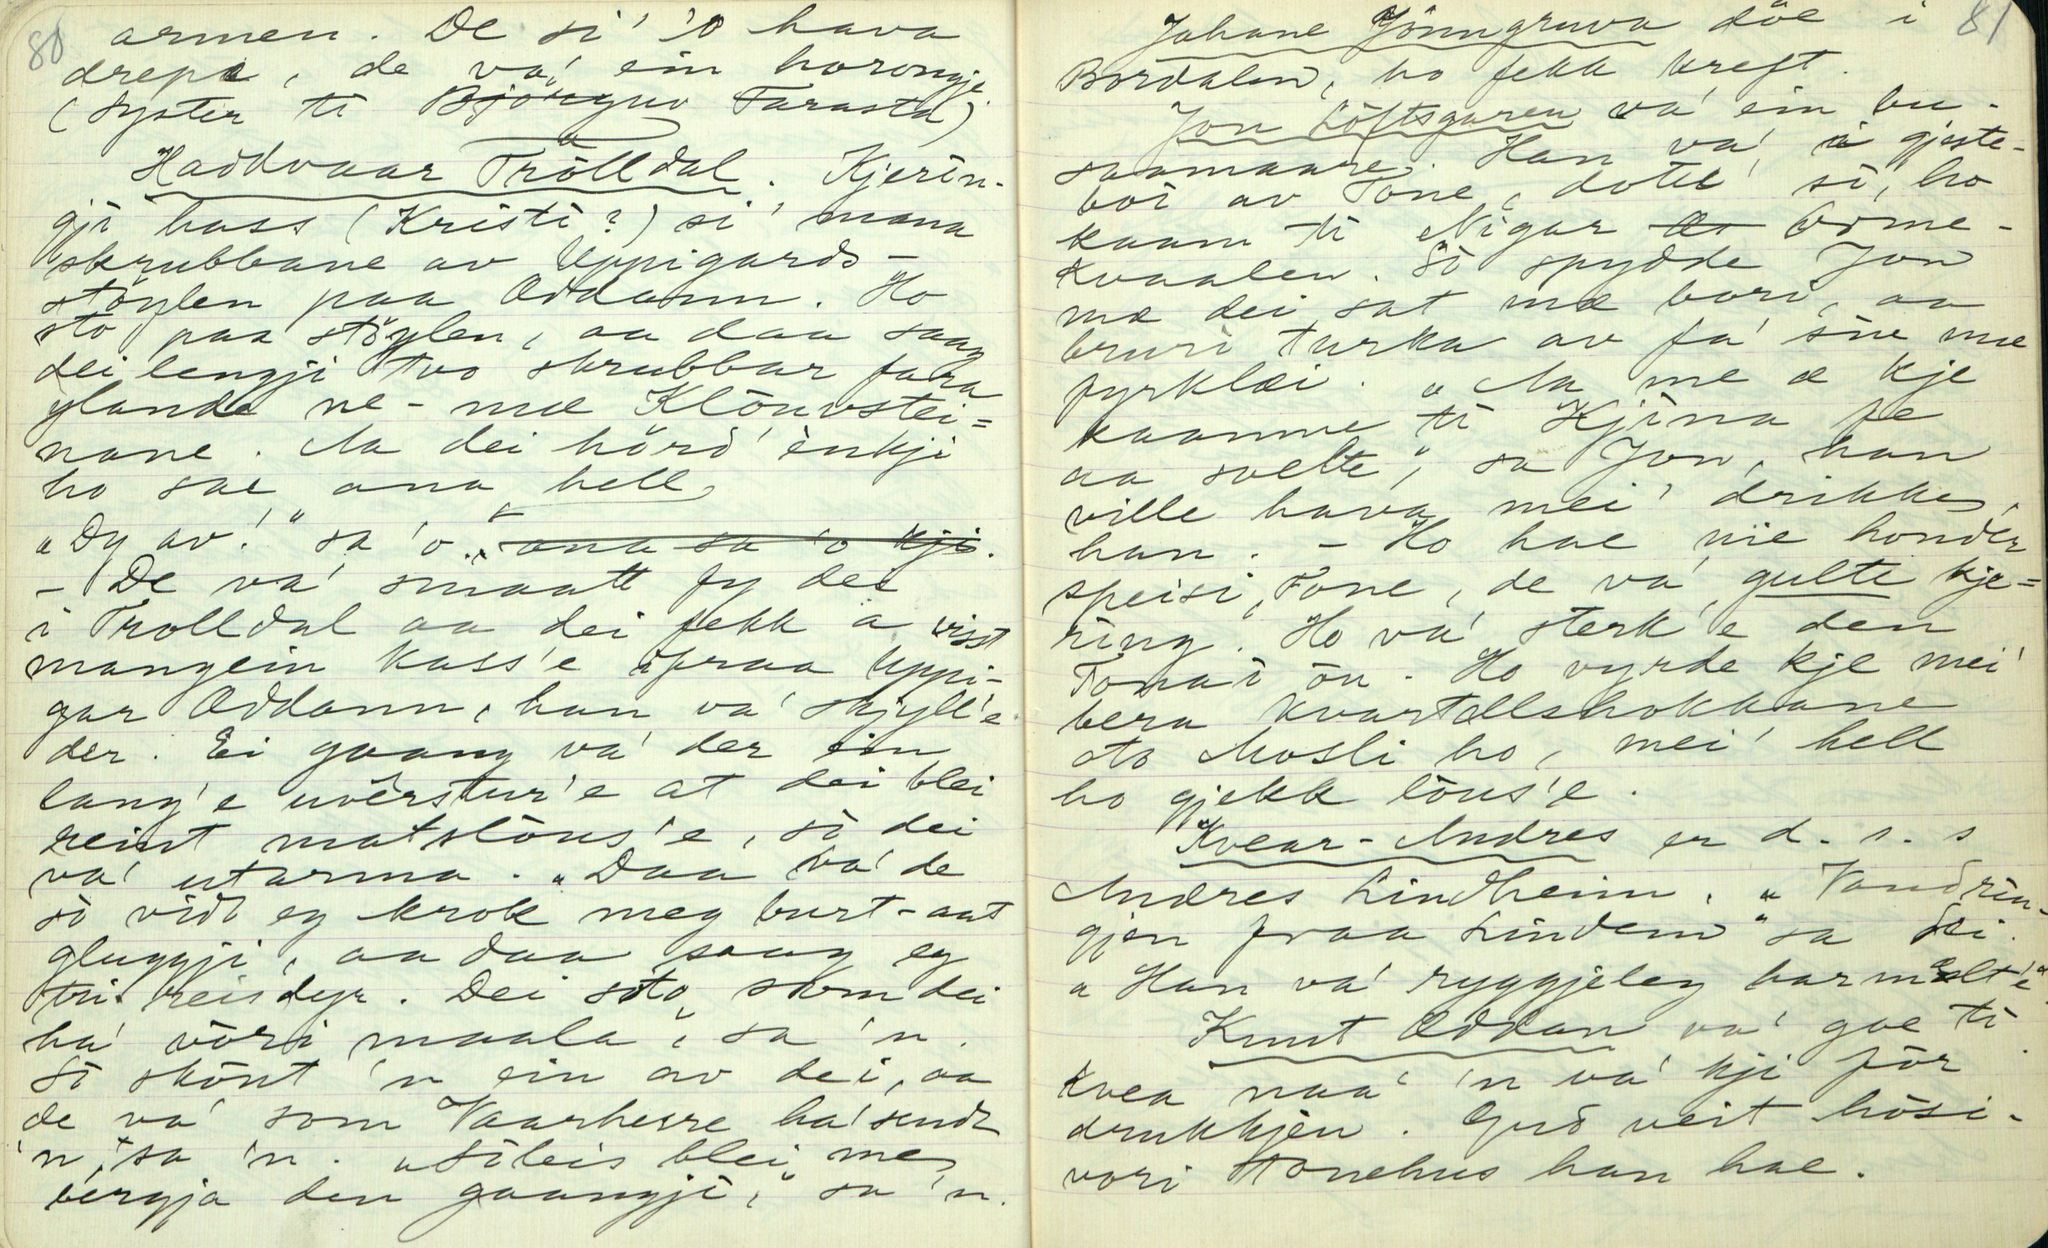 80
armen. De si' 'o hava
drepe, de va' ein horongje.
(Syster ti Bjørguv Tarastd)
Haddvaar Trölldal. Kjerin-
gji hass (Kristi?) si' mana
skrubbane av Uppigards-
støylen paa Oddann. Ho
sto paa støylen, aa daa saag
dei lengji tvo skrubbar fara
ylande ne-mæ Klöuvstei-
nane. Aa dei hörd' ènkji
ho sae ana hell
"Dy av!" sa 'o. ana sa 'o kji.
- De va' smaatt fy dei
i Trolldal aa dei fekk a visst
mangein kass'e ifraa Uppi-
gar Oddann, han va' skjyll'e
der. Ei gaang va' der ein
lang'e uvêrstur'e at dei blei
reint matslöus'e, so dei
va' utarma. "Daa va' de
so vidt eg krok meg burt-aat
gluggji, aa daa saag eg
tri reisdyr. Dei sto som dei
ha' vöri maala", sa 'n.
So sköut 'n ein av dei, aa
de va' som Vaarherre ha' sendt
'n, sa 'n. "Soleis blei me
bergja den gaangji," sa 'n.
81
Johane Jönngruva döe i
Bordalen, ho fekk kreft.
Jon Löftsgaren va' ein bu-
saamaare. Han va' i gjeste-
boi av Tone, dotte' si, ho
kaam ti Nigar Bröme-
kvaalen. So spydde Jon
mæ dei sat mæ bori, aa
bruri turka av fa' sin mæ
fyrklæi. "Aa me æ kje
kaamme ti Kjina fe
aa svelte", sa Jon, han
ville hava mei' drikkes,
han. - Ho hae nie honder
speisi, Tone, de va' gulte kje-
ring. Ho va' sterk'e den
Tona i ön. Ho vyrde kje mei'
bera kvartellshokkane
sto Mosli ho, mei' hell
ho gjekk löus'e.
Kvear-Andres er d. s. s
Andres Lindheim. "Vandrin-
gjen fraa Lindem" sa dei.
"Han va' ryggjeleg barmælt'e"
Knut Oddan va' goe ti
kvea naa' 'n va' kji för
drukkjen. Gud veit hösi-
vori tonehus han hae.